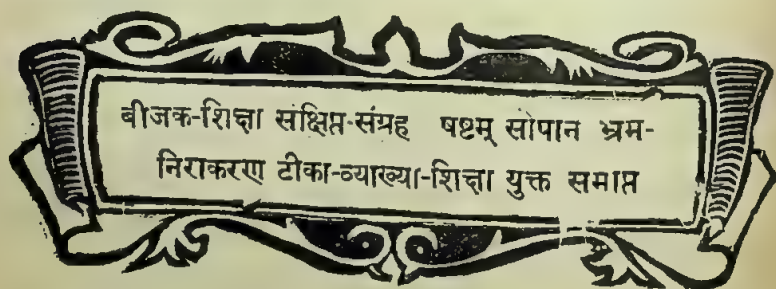 बीजक-शिक्षा संक्षिप्त-संग्रह षष्टम् सोपान भ्रम-
निराकरण टीका-व्याख्या-शिक्षा युक्त समाप्त